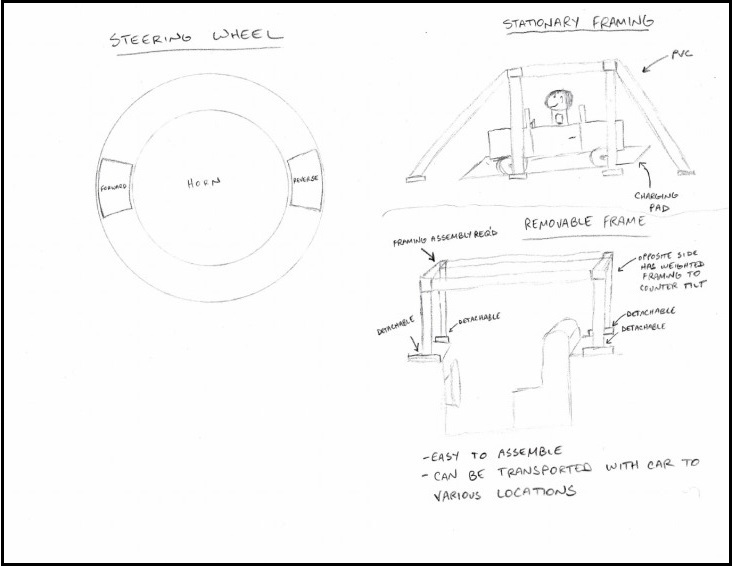 STEERING WHEEL
FORWARD
HORN
REVERSE
STATIONARY FRAMING
PVC
CHARGING
PAD
REMOVABLE FRAME
FRAMING ASSEMBLY REQ'D
OPPOSITE SIDE
HAS WEIGHTED
FRAMING TO
COUNTER TILT
DETACHABLE
DETACHABLE
DETACHABLE
DETACHABLE
-EASY TO ASSEMBLE
-CAN BE TRANSPORTED WITH CAR TO
VARIOUS LOCATIONS